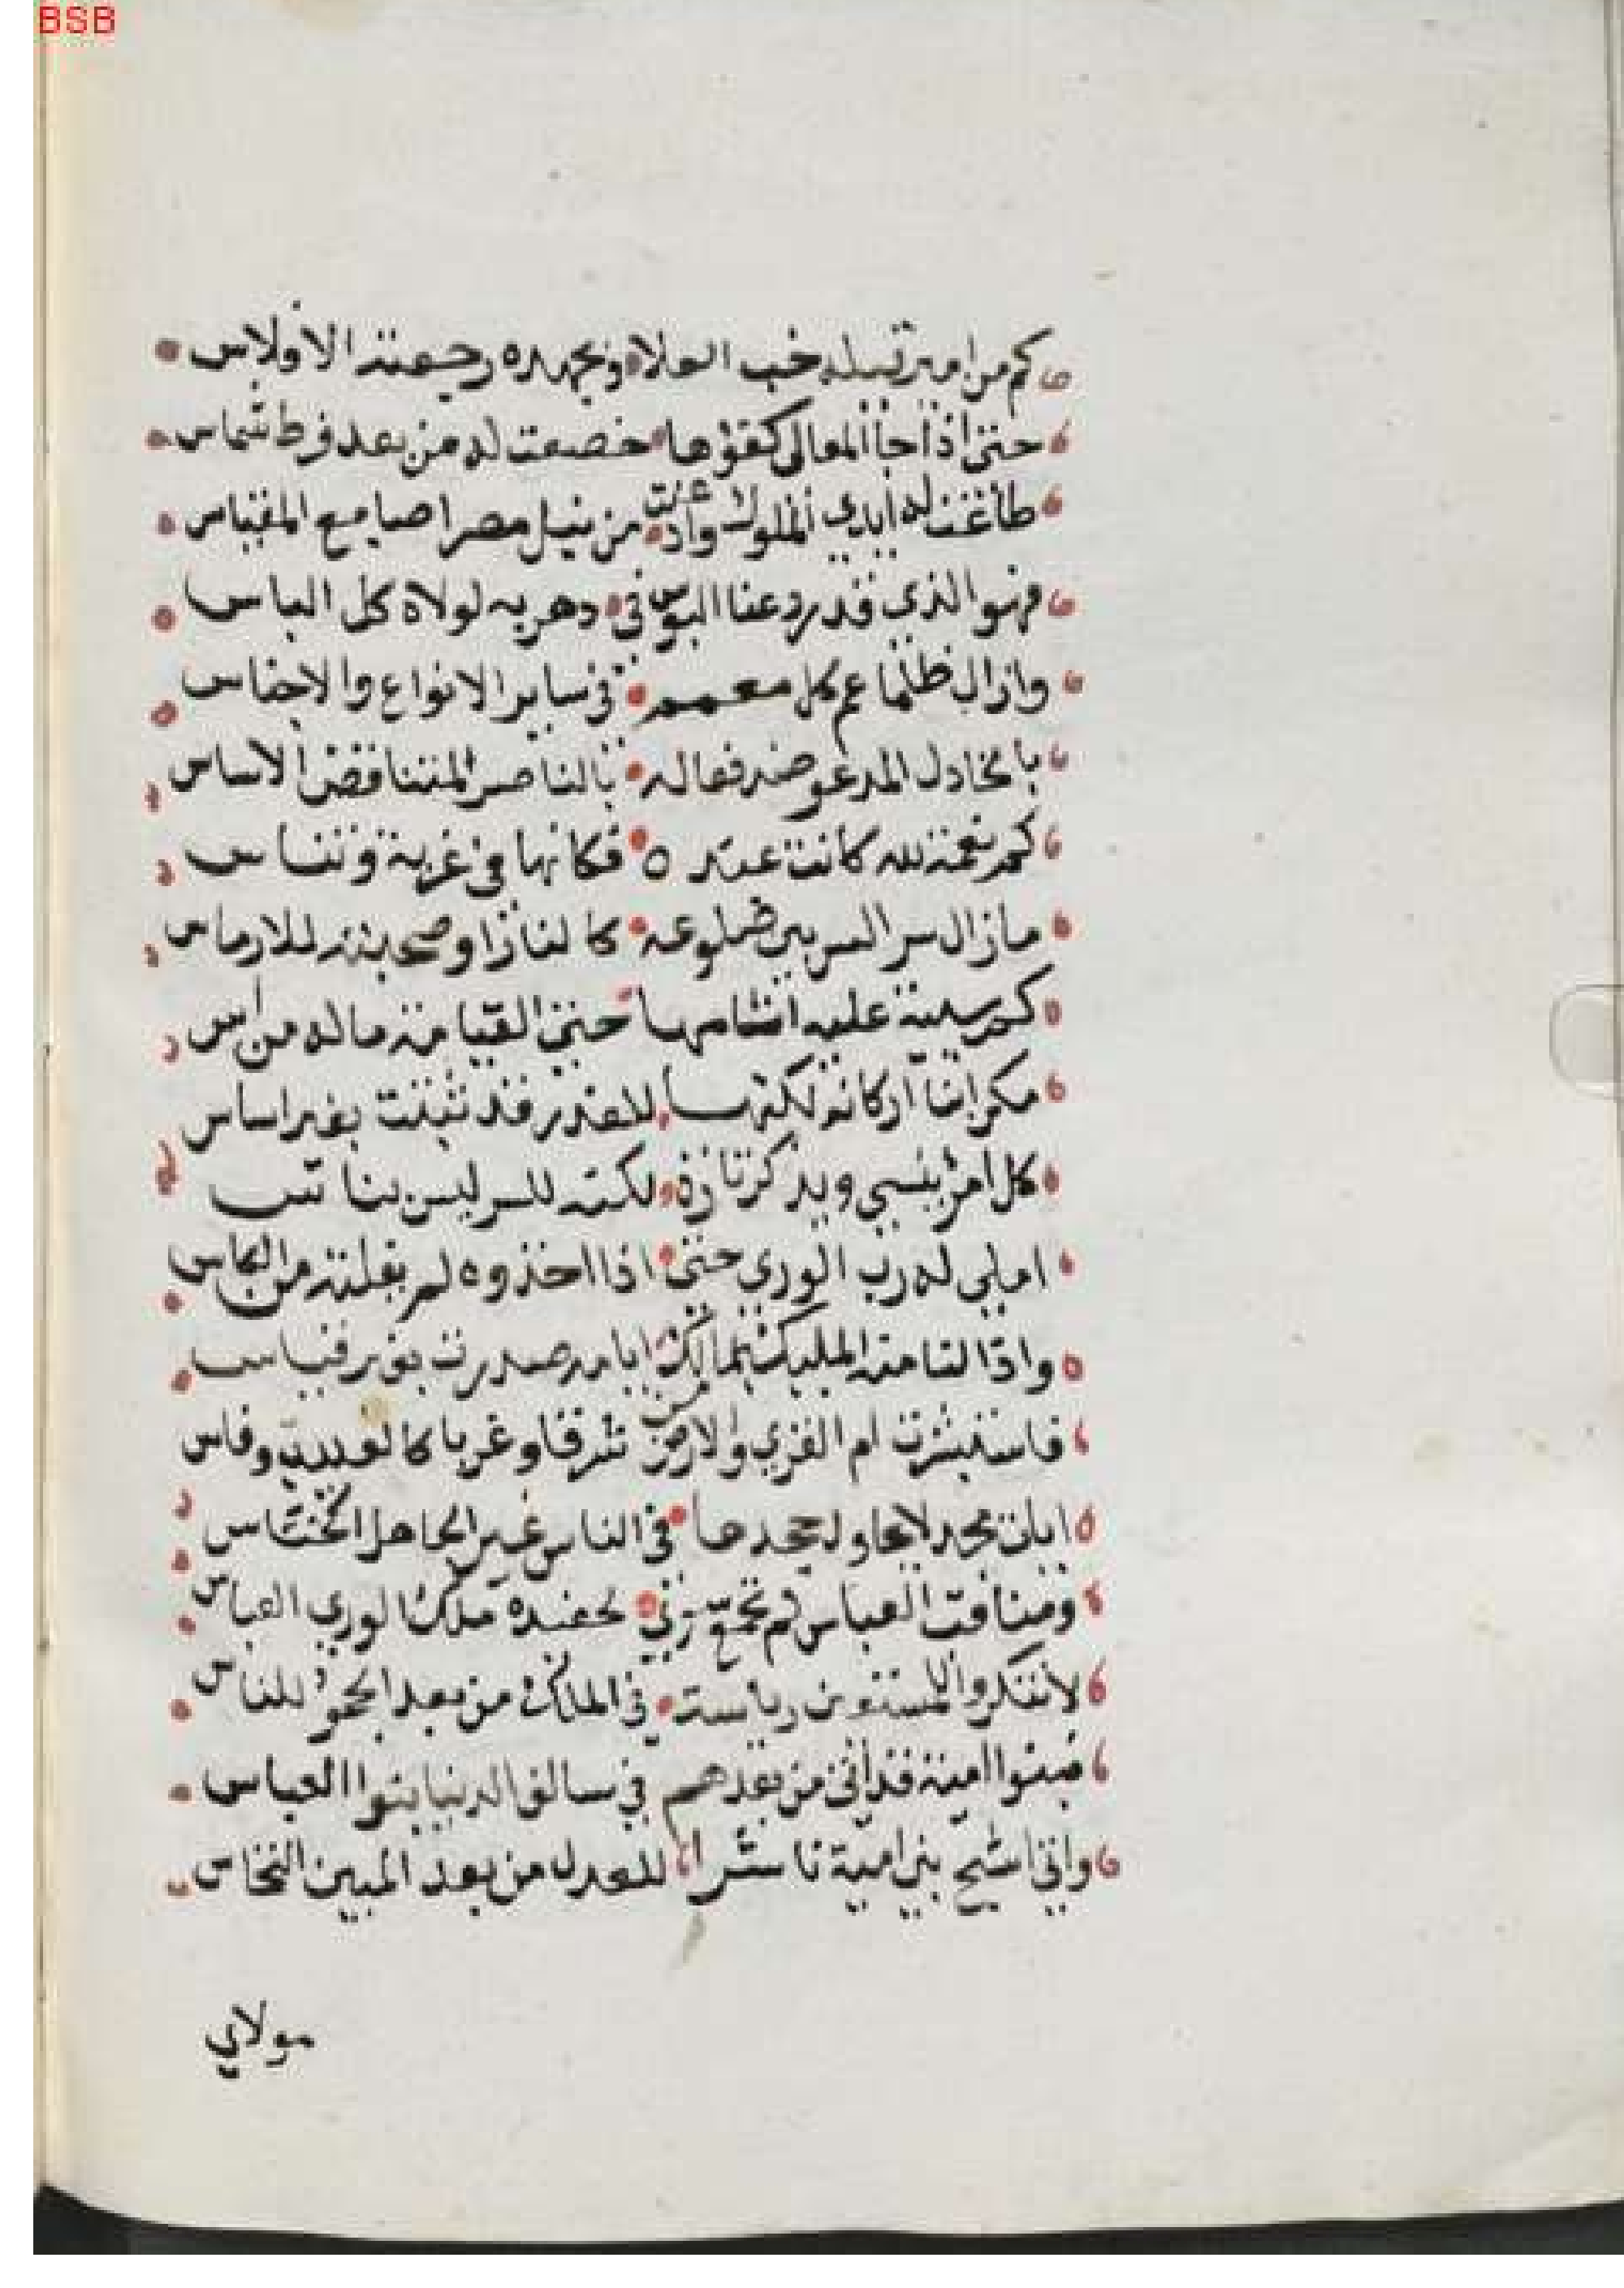 BSB
كم من امير قبله خب العلا وبجهده رجعته الافلاس
حتى اذا جا المعالي كفؤها خضعت له من بعد فرط شماس
طاعت له ايدي الملوك واذعنت من نيل مصر اصابع المقياس
فهو الذي قد رد عنا البوس في دهر به لولاه كل الباس
وازال ظلما عم كل معمم في ساير الانواع والاجناس
بالخاذل المدعو ضد فعاله بالناصر المتناقض الاساس
كم نعمة لله كانت عنده فكانها في غربة وتناس
مازال سر السر بين ضلوعه كالنار او صحبته للارماس
كم سيية عليه اثامها حتى القيامة ماله من اس
مكرا بنا اركانه لكنها للغدر قد بنيت بغير اساس
كل امرئ ينسي ويذكر تارة لكنه للسر ليس بناس
املى له رب الورى حتى اذا اخذوه لم يفلته من الكاس
وادالنا منه المليك بمالك ايامه صدرت بغير قياس
فاستبشرت ام القري والارض من شرقا وغربا كالعذيب وفاس
ايات مجد لا يحاول جحدها في الناس غير الجاهل الخناس
ومناقب العباس لم تجمع سوى لحفيده ملك الورى العباس
لا تنكروا للمستعين رياسة في الملك من بعد الجحود للناس
فبنوا امية قد اتى من بعدهم في سالف الدنيا بنوا العباس
واتى اشج بني امية ناشرا للعدل من بعد المبير الخناس
مولاي